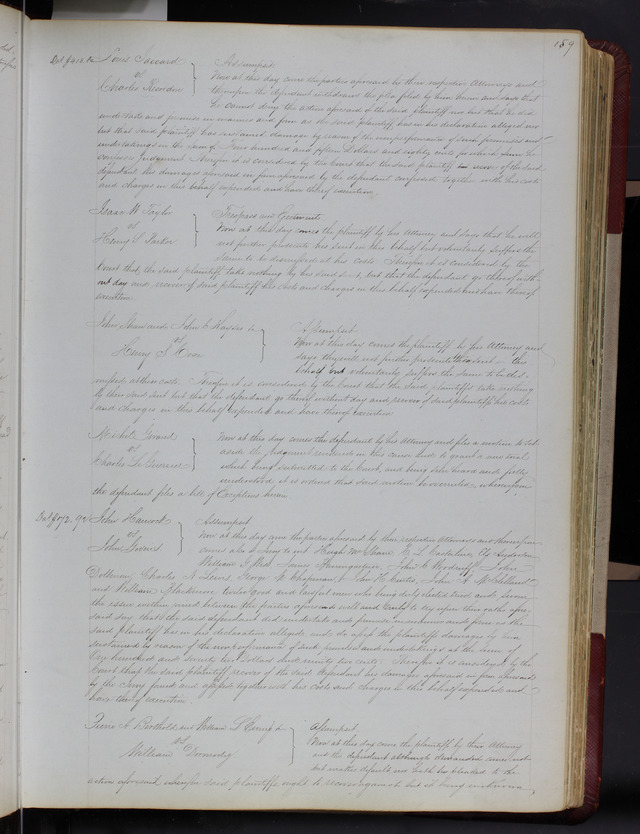 159
Assumpsit
vs
Now at this day comes the parties aforesaid by their respective Attorneys and
Charles
thereupon the defendant withdraws the plea filed by him herein and says that
he cannot deny the action aforesaid of the said plaintiff nor but that he did
undertake and promise in manner and form as the said plaintiff has in his declaration alleged nor
but that said plaintiff has sustained damage by reason of the nonperformance of said promises and
undertakings to the sum of hundred and fifteen dollars and eighty cents for which sum he
confesses Judgment Therefore it is considered by the Court that the said plaintiff recover of the said
defendant his damages aforesaid in form aforesaid by the defendant confessed together with his costs
and charges in this behalf expended and have thereof execution
Isaac W Taylor
Trespass and Ejectment
vs
Now at this day comes the plaintiff by his Attorney and says that he will
Henry S Parker
not further prosecute his suit in this behalf but voluntarily suffers the
same to be dismissed at his costs Therefore it is considered by the
Court that the said plaintiff take nothing by his said suit, but that the defendant go thereof with-
out day and recover of said plaintiff his costs and charges in this behalf expended and have thereof
execution
John & John
Assumpsit
vs
Now at this day comes the plaintiffs by their Attorney and
Henry S
says they will not further prosecute this suit the
behalf but voluntarily suffer the same to be dis-
missed at their costs Therefore it is considered by the Court that the said plaintiffs take nothing
by their said suit but that the defendant go thereof without day and recover of said plaintiffs his costs
and charges in this behalf expended and have thereof execution
Now at this day comes the defendant by his Attorney and files a motion to set
vs
aside the Judgment rendered in this cause and to grant a new trial
Charles
which being submitted to the Court and being seen heard and fully
understood it is ordered that said motion be overruled whereupon
the defendant files a bill of Exceptions herein
John Hancock
Assumpsit
vs
Now at this day come the parties aforesaid by their respective Attorneys and thereupon
John
comes also a Jury to wit Hugh
William G James John C John
Charles A Lewis, George W Chapman, John H Curtis, John
and William Mackinson twelve good and lawful men who being duly elected tried and sworn
the issue within joined between the parties aforesaid well and truly to try upon their oaths afore-
said say that the said defendant did undertake and promise in manner and form as the
said plaintiff has in his declaration alleged and do assess the plaintiffs damages by him
sustained by reason of the nonperformance of such promises and undertakings at the sum of
One hundred and seventy two Dollars and ninety two cents Therefore it is considered by the
Court that the said plaintiff recover of the said defendant his damages aforesaid in form aforesaid
by the Jury found and assessed together with his costs and charges in this behalf expended and
have thereof execution
Pierre A Berthold and William L Ewing &
Assumpsit
vs
Now at this day come the plaintiffs by their Attorney
William
and the defendant although demanded comes not
but makes default nor hath he pleaded to the
action aforesaid wherefore said plaintiffs ought to recover against but it being unknown